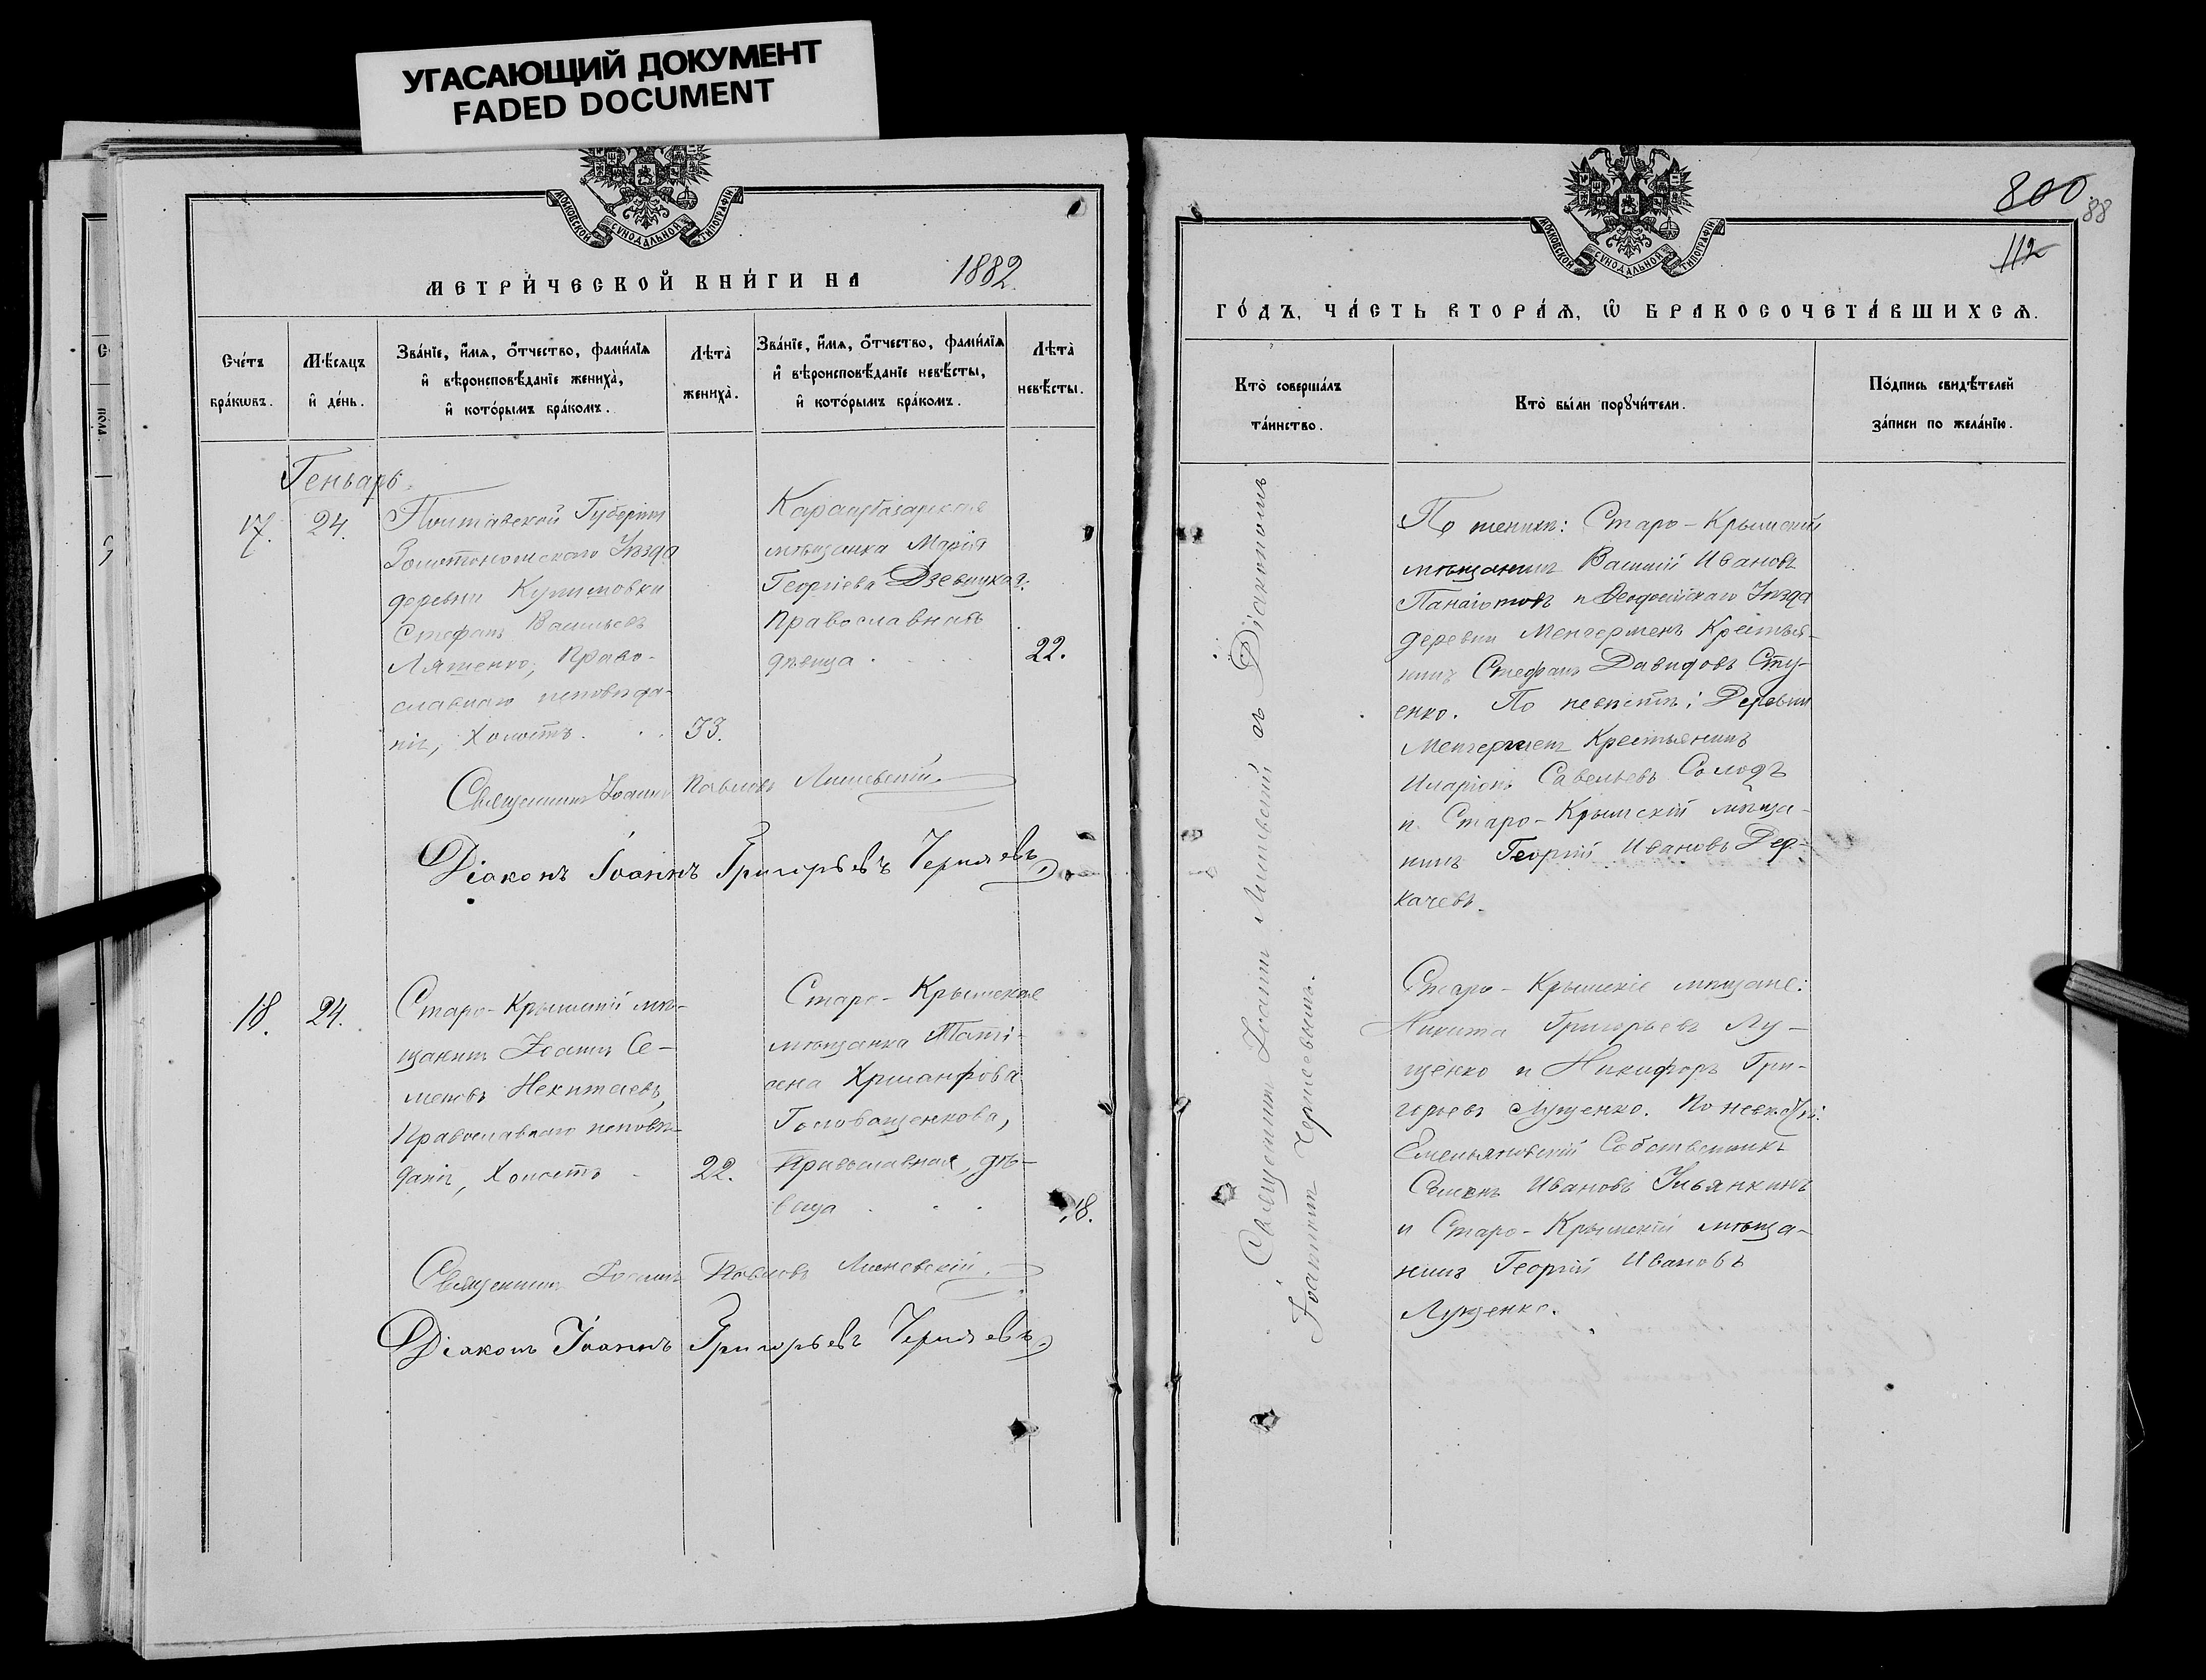 УГАСАЮЩИЙ ДОКУМЕНТ
FADED DOCUMENT
МОСКОВСКОЙ СУНОДАЛЬНОЙ ТИПОГРАФІИ
МЕТРИ́ЧЕСКОЙ КНИ́ГИ НА 1882.
Сче́тъ бра́кѡвъ.
Мѣ́сяцъ и҆ де́нь.
Зва́нїе, и҆́мя, ѻ҆́тчество, фами́лїя
и҆ вѣроисповѣ́данїе жениха̀,
и҆ кото́рымъ бра́комъ.
Лѣта̀ жениха̀.
Зва́нїе, и҆́мя, ѻ҆́тчество, фами́лїя
и҆ вѣроисповѣ́данїе невѣ́сты,
и҆ кото́рымъ бра́комъ.
Лѣта̀ невѣ́сты.
Геньварь.
17.
24.
Полтавской Губерніи
Золотоношскаго Уѣзда
деревни
Стефанъ Васильевъ
Ляшенко, Право-
славнаго исповѣда-
нія, Холостъ.
33.
Карасубазарская
мѣщанка Марія
Георгіева Дзевицкая.
Православная
дѣвица
22.
Священникъ Іоаннъ Павловъ
Діаконъ Іоаннъ Григорьевъ Черняевъ
18.
24.
Старо-Крымскій мѣ-
щанинъ Іоаннъ Се-
меновъ Некитаевъ,
Православнаго исповѣ-
данія, Холостъ
22.
Старо-Крымская
мѣщанка Таті-
ана
Головащенкова,
Православная, дѣ-
вица
18.
Священникъ Іоаннъ Павловъ
Діаконъ Іоаннъ Григорьевъ Черняевъ
МОСКОВСКОЙ СУНОДАЛЬНОЙ ТИПОГРАФІИ
800
88
112
ГО́ДЪ, ЧА́СТЬ ВТОРА́Ѧ, Ѡ҆ БРАКОСОЧЕТА́ВШИХСѦ.
Кто̀ соверша́лъ
та́инство.
Кто̀ бы́ли порꙋчи́тели.
По́дпись свидѣ́телей
за́писи по жела́нїю.
Священникъ Іоаннъ съ Діакономъ
Іоанномъ Черняевымъ.
По женихѣ: Старо-Крымскій
мѣщанинъ Василій Ивановъ
Панаіотовъ и Ѳеодосійскаго Уѣзда
деревни Менгерменъ Крестья-
нинъ Стефанъ Давидовъ Сту-
енко. По невѣстѣ: Деревни
Менгерменъ Крестьянинъ
Иларіонъ Савельевъ Солодъ
и Старо-Крымскій мѣща-
нинъ Георгій Ивановъ Дер-
качевъ.
Старо-Крымскіе мѣщане:
Никита Григорьевъ Лу-
щенко и Никифоръ Гри-
горьевъ Лущенко. По невѣстѣ:
Собственникъ
Семенъ Ивановъ Ульянкинъ
и Старо-Крымскій мѣща-
нинъ Георгій Ивановъ
Лущенко.